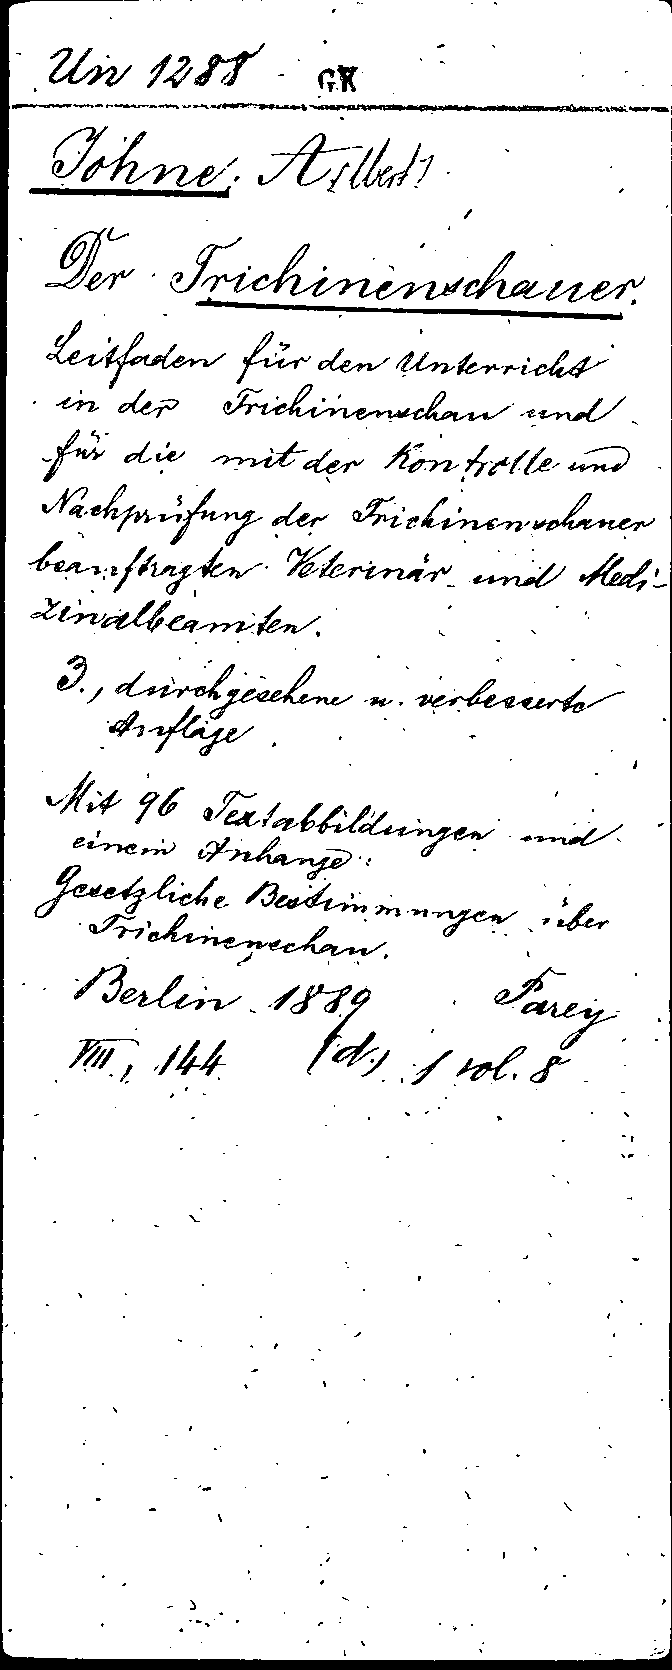 Un 1288 GK
Johne, A[lbert]
Der Trichinenschauer.
Leitfaden für den Unterricht
in der Trichinenschau und
für die mit der Kontrolle und
Nachprüfung der Trichinenschauer
beauftragten Veterinär- und Medi-
zinalbeamten.
3., durchgesehene u. verbesserte
Auflage
Mit 96 Textabbildungen und
einem Anhange:
Gesetzliche Bestimmungen über
Trichinenschau.
Berlin 1889 Parey
VIII, 144 (d.) 1 vol. 8